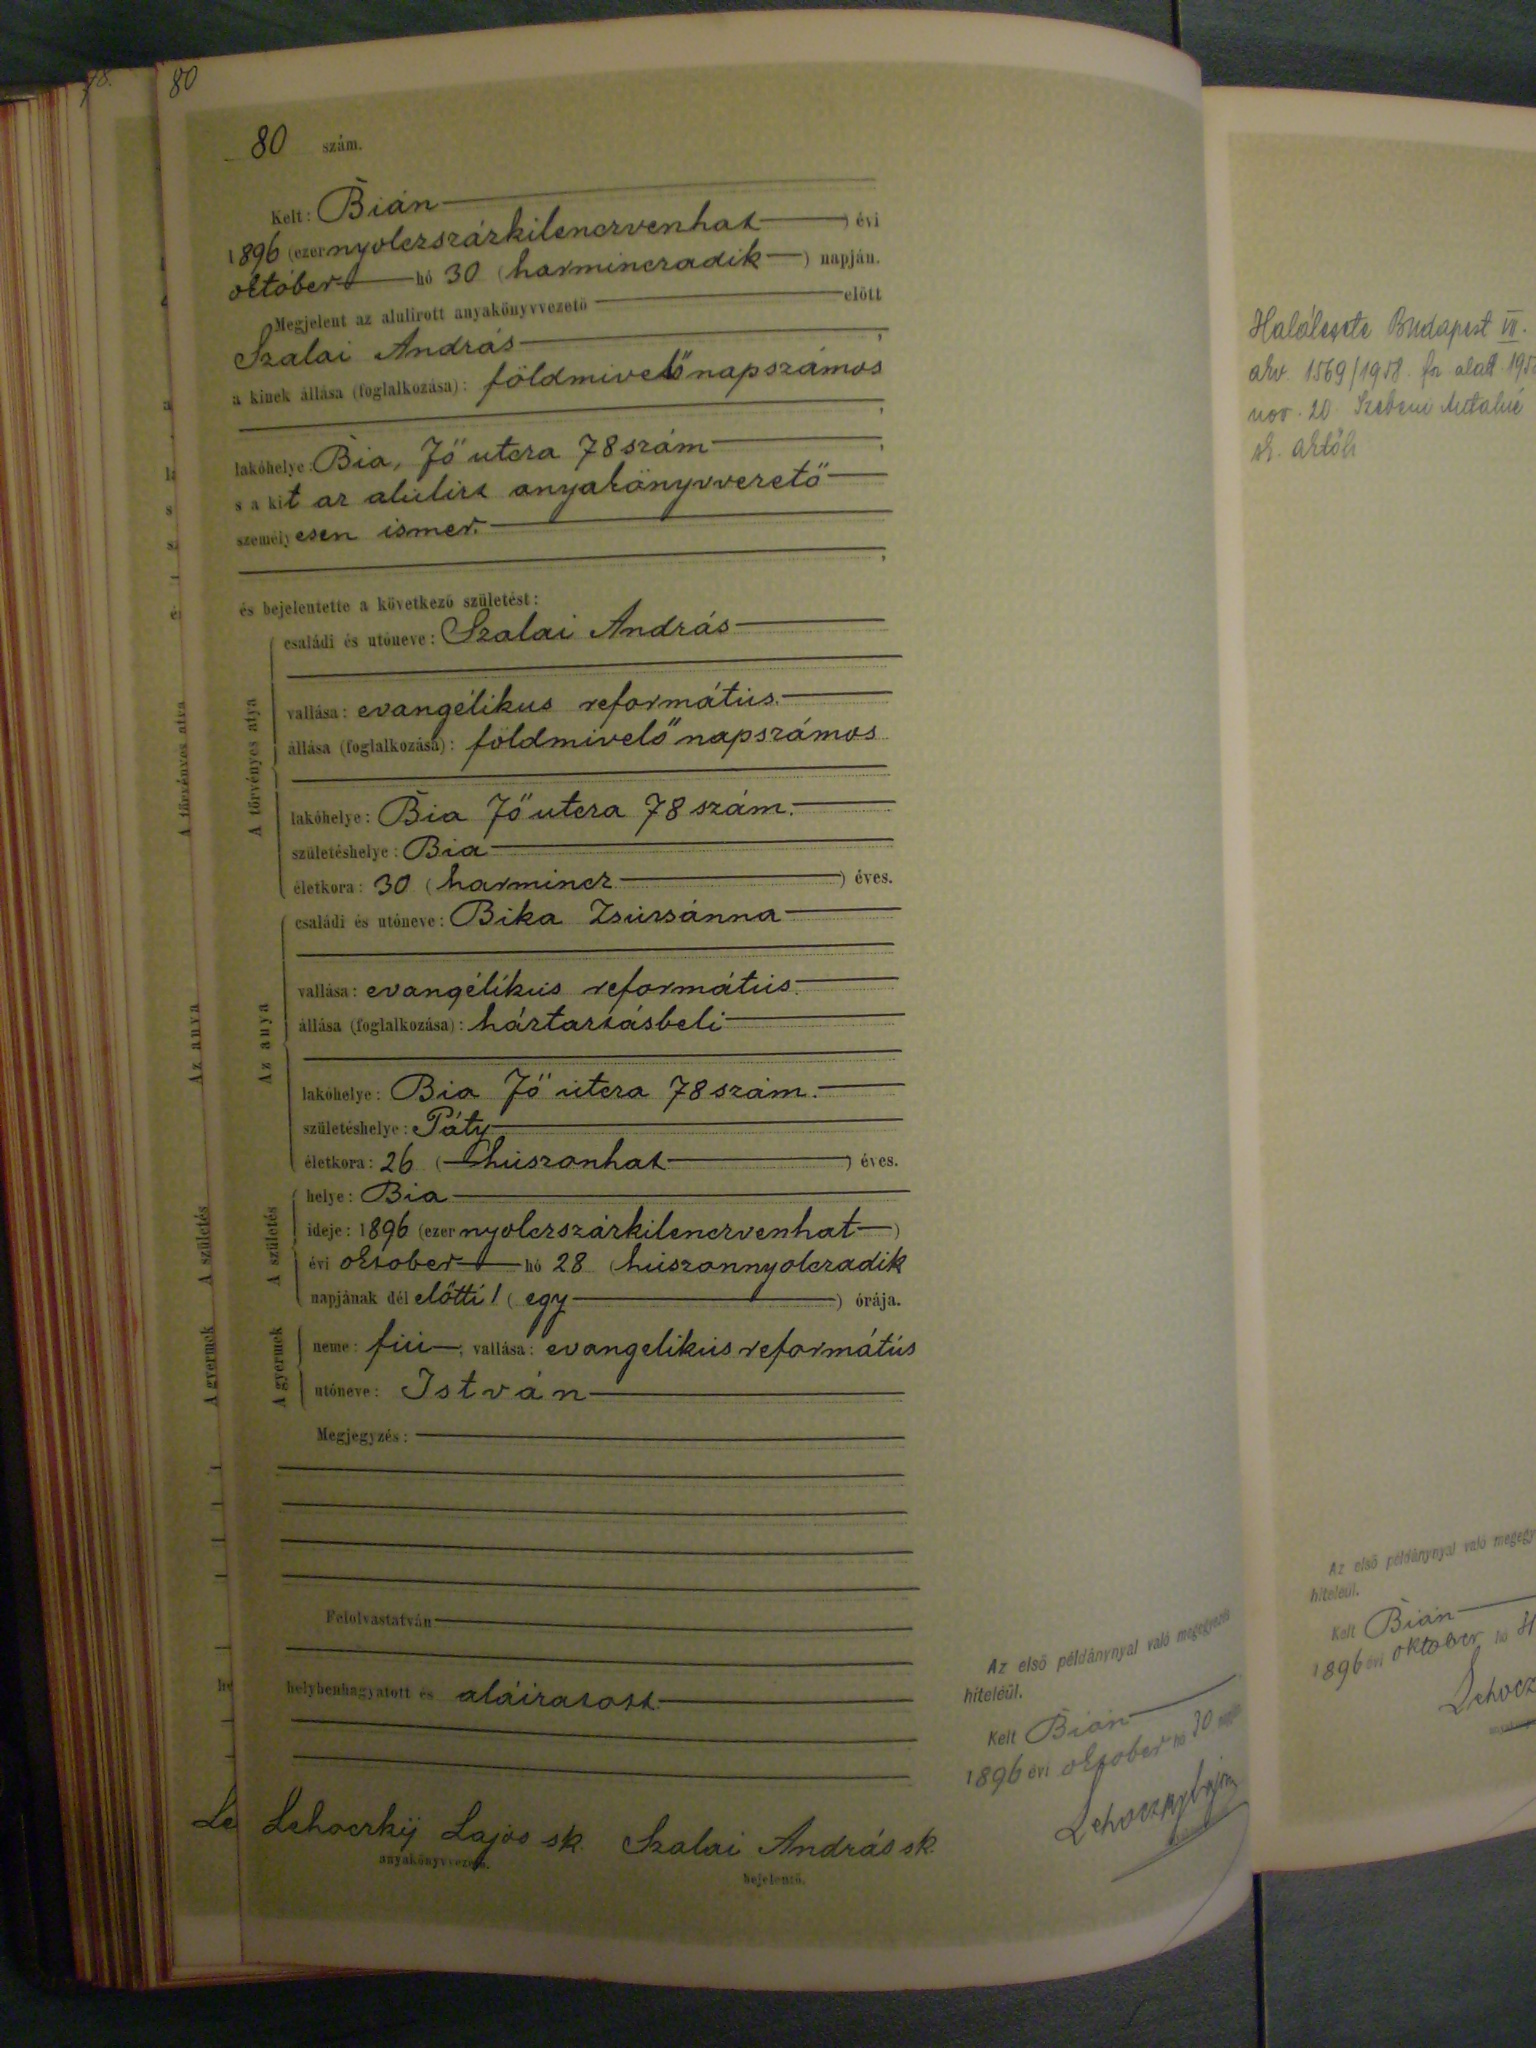 78.
80
80 szám.
Kelt: Bián
1896 (ezernyolczszázkilenczvenhat) évi
október hó 30 (harminczadik) napján.
Megjelent az alulirott anyakönyvvezető előtt
Szalai András,
a kinek állása (foglalkozása): földmivelő napszámos
lakóhelye: Bia, Fő utcza 78 szám,
s a kit az alulirt anyakönyvvezető
személyesen ismer.
és bejelentette a következő születést:
A törvényes atya
családi és utóneve: Szalai András
vallása: evangélikus református.
állása (foglalkozása): földmivelő napszámos
lakóhelye: Bia Fő utcza 78 szám.
születéshelye: Bia
életkora: 30 (harmincz) éves.
Az anya
családi és utóneve: Bika Zsúzsánna
vallása: evangélikus református.
állása (foglalkozása): háztartásbeli
lakóhelye: Bia Fő utcza 78 szám.
születéshelye: Páty
életkora: 26 (huszonhat) éves.
A születés
helye: Bia
ideje: 1896 (ezernyolczszázkilenczvenhat)
évi október hó 28 (huszonnyolczadik
napjának dél előtti 1 (egy) órája.
A gyermek
neme: fiú; vallása: evangelikus református
utóneve: István
Megjegyzés:
Felolvastatván
helybenhagyatott és aláiratott.
Lehoczkÿ Lajos sk. Szalai András sk.
anyakönyvvezető. bejelentő.
Az első példánynyal való megegyezés
hiteléül.
Kelt Bián
1896 évi október hó 30 napján
Lehoczky Lajos
Halálesete Budapest VII.
akv. 1569/1958. alatt
nov. 20.
Az első példánynyal való
hiteléül.
Kelt Bián
1896 évi október hó